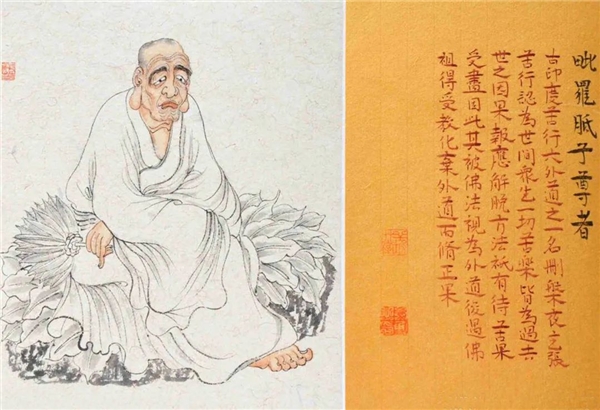 毗羅胝子尊者
古印度苦行六外道之一名删夜主張
苦行認為世間衆生一切苦樂皆為過去
世之因果報應解脫方法祇有待苦果
受盡因此其被佛法視為外道後遇佛
祖得受教化棄外道而脩正果